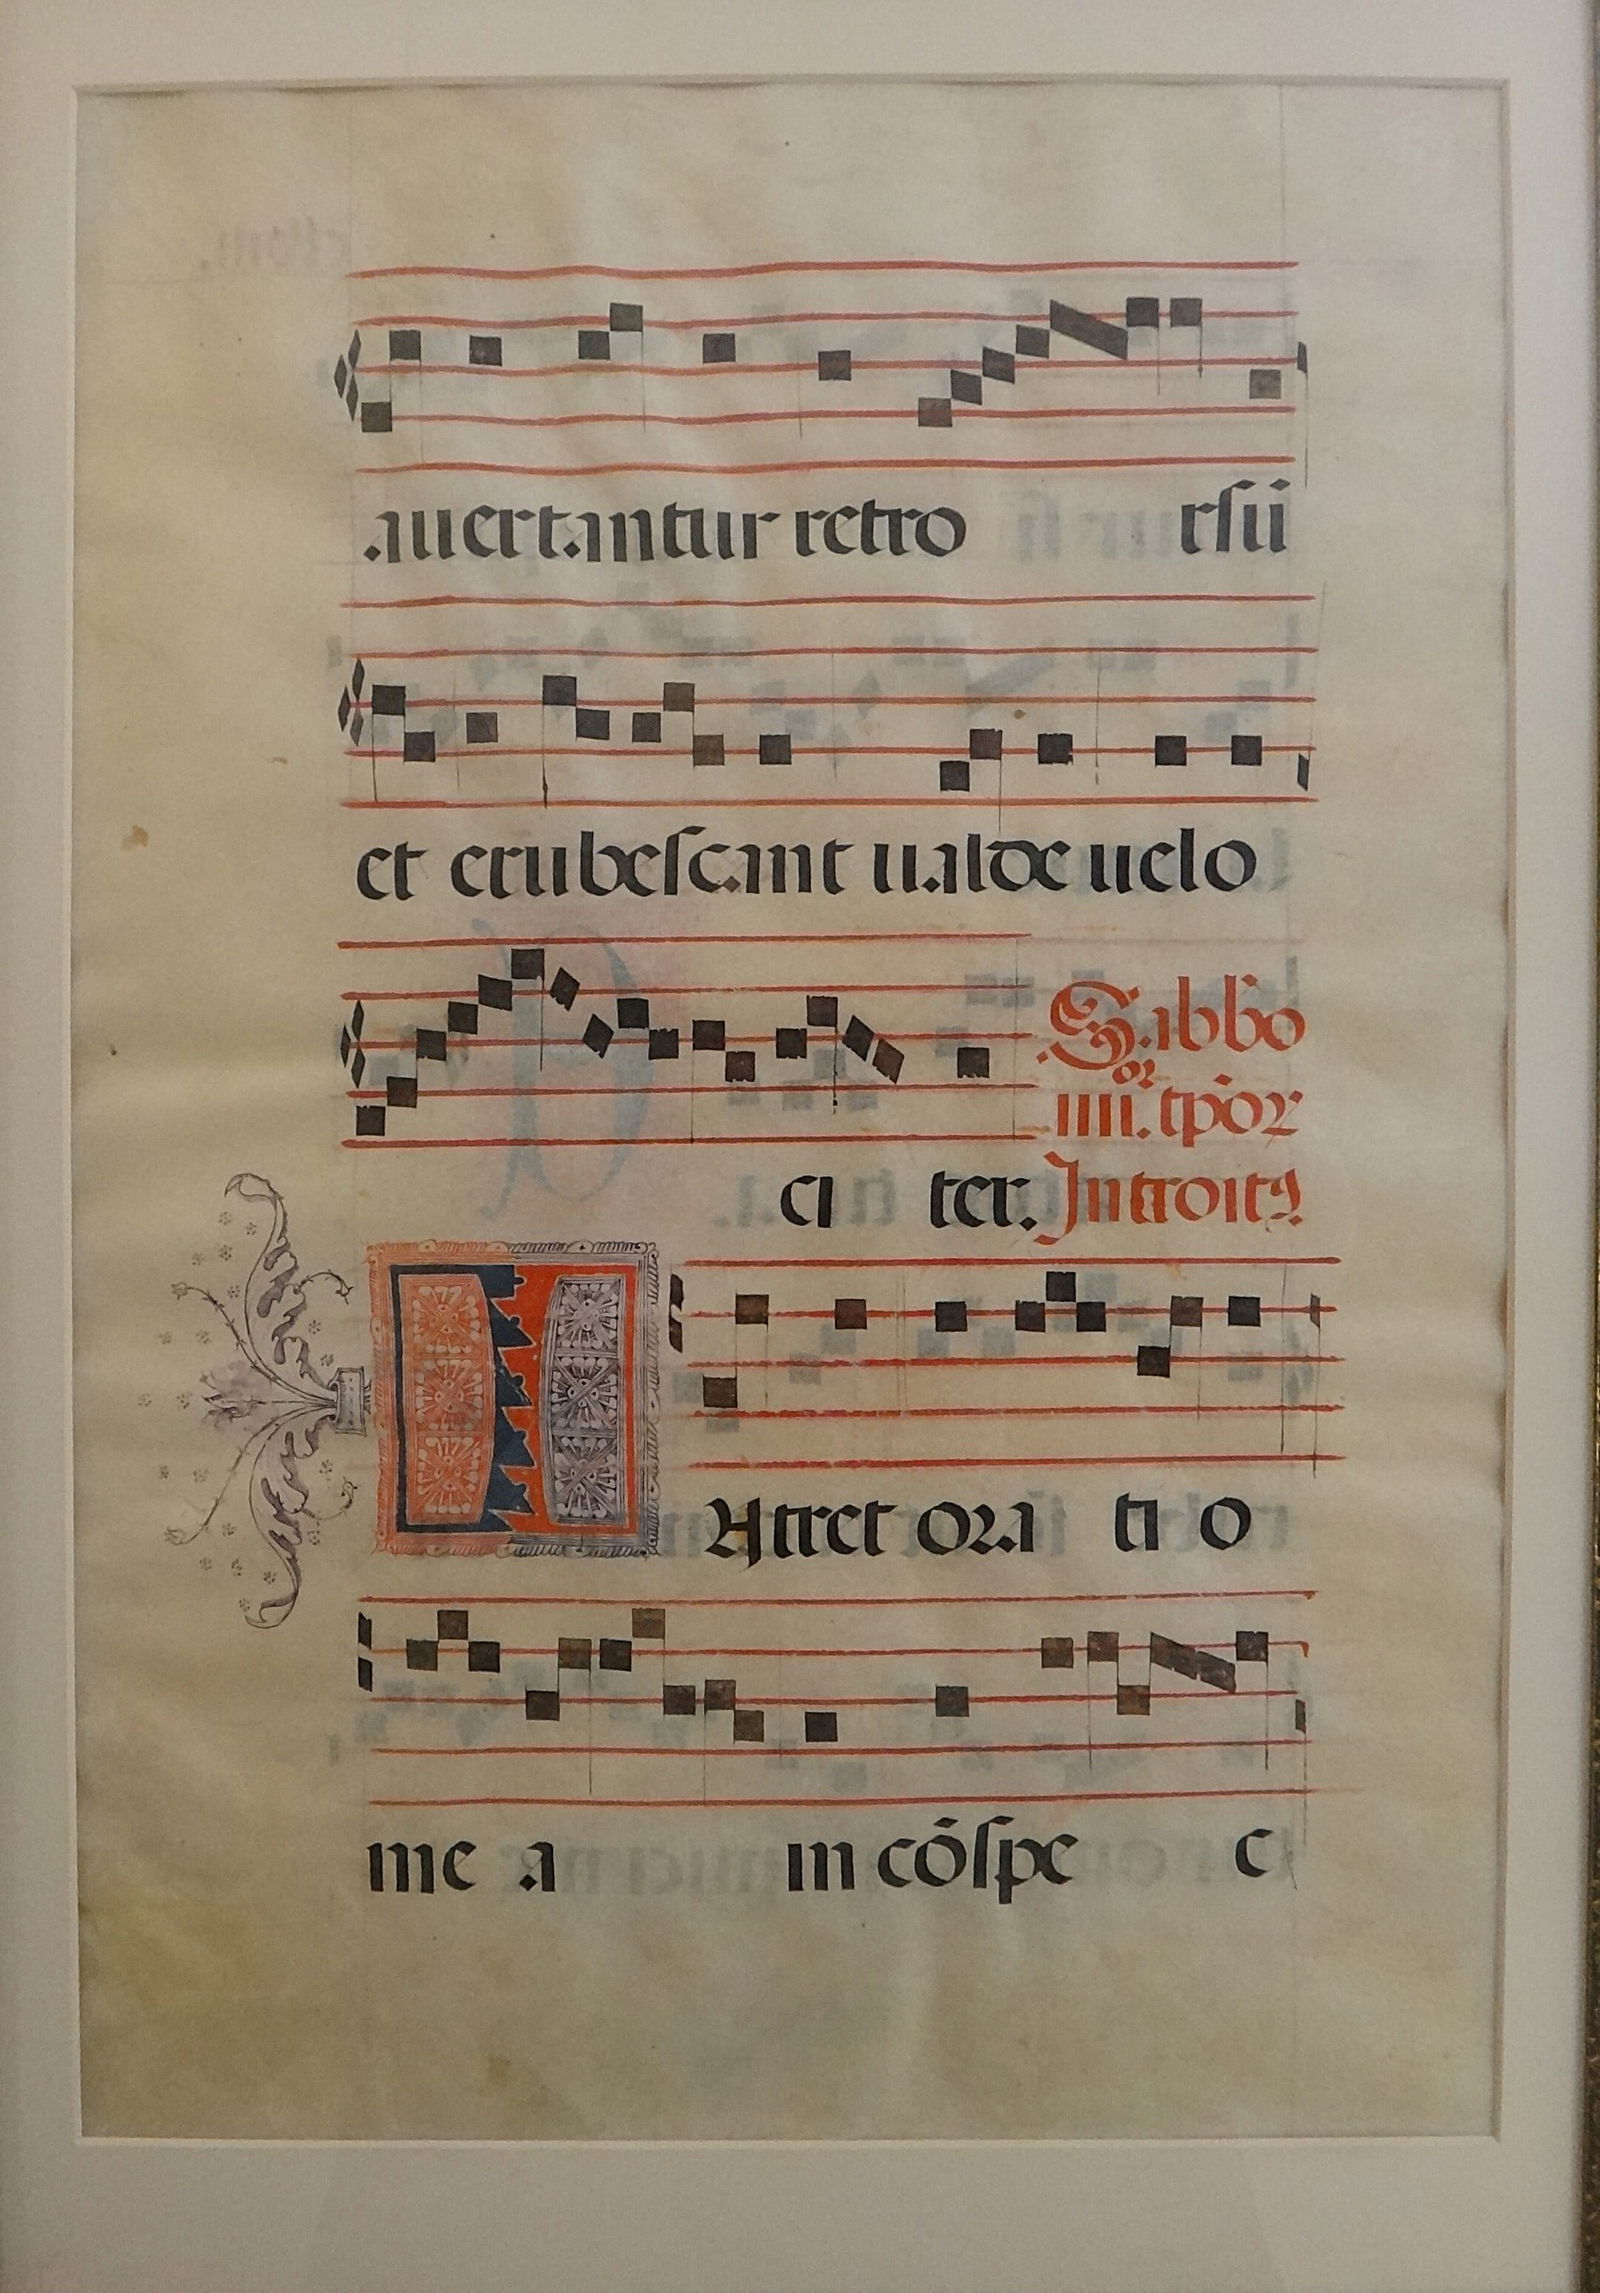 auertantur retro rſū
et erubeſcant ualde uelo
Sabbo
iiiior. tpoꝝ
ci ter. Introitꝰ
IAtret ora ti o
me a in cōſpe c